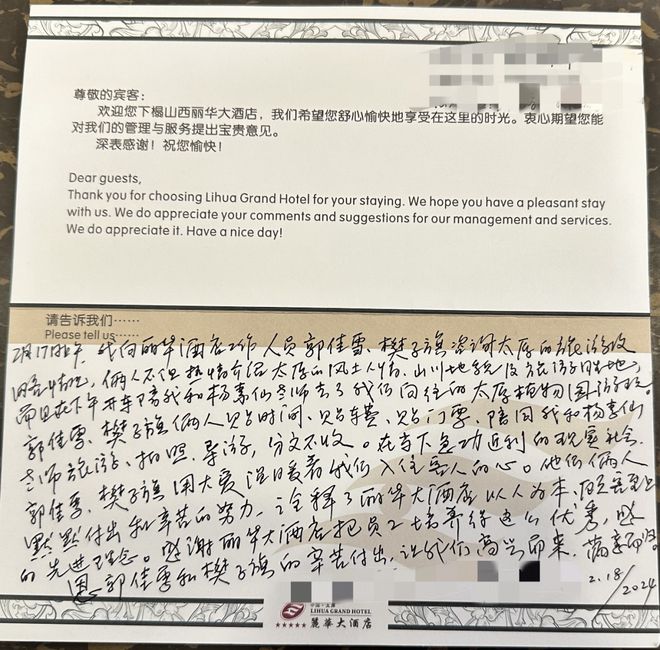 尊敬的宾客：
欢迎您下榻山西丽华大酒店，我们希望您舒心愉快地享受在这里的时光。衷心期望您能
对我们的管理与服务提出宝贵意见。
深表感谢！祝您愉快！
Dear guests,
Thank you for choosing Lihua Grand Hotel for your staying. We hope you have a pleasant stay
with us. We do appreciate your comments and suggestions for our management and services.
We do appreciate it. Have a nice day!
请告诉我们……
Please tell us……
2月17日上午，我向丽华酒店工作人员郭佳雪、樊子旗咨询太原的旅游攻
略情况，俩人不但热情介绍太原的风土人情、山川地貌及旅游胜地，
而且在下午开车陪我和杨喜仙老师去了我们向往的太原植物园游玩。
郭佳雪、樊子旗俩人贴时间、贴车费、贴门票，陪同我和杨喜仙
老师旅游、拍照、导游，分文不收。在当下急功近利的现实社会，
郭佳雪、樊子旗用大爱温暖着我们入住客人的心。他们俩人
默默付出和辛苦的努力，诠释了丽华大酒店以人为本，顾客至上
的先进理念。感谢丽华大酒店把员工培养得这么优秀，感
恩郭佳雪和樊子旗的辛苦付出，让我们高兴而来，满意而归。
2.18/2024
中国·太原
LIHUA GRAND HOTEL
麗華大酒店